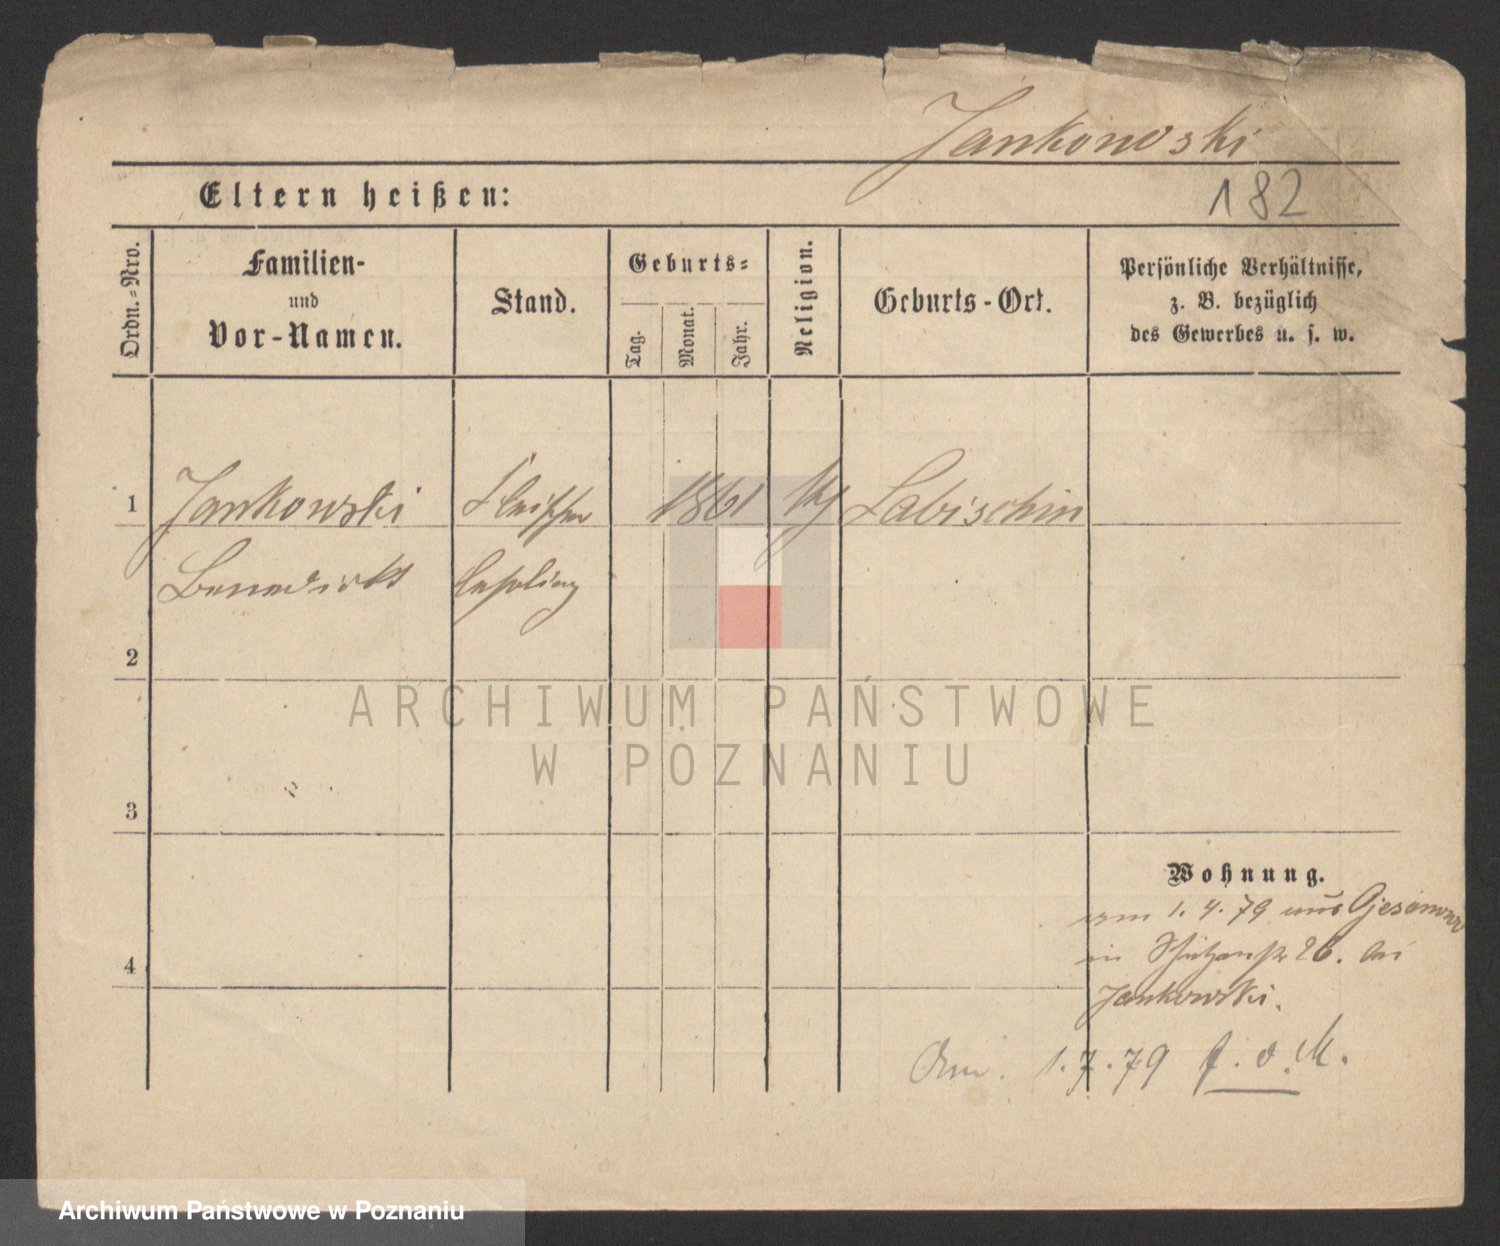 Jankowski
182
Eltern heißen:
Ordn.-Nro.
Familien-
und
Vor-Namen.
Stand.
Geburts-
Tag.
Monat.
Jahr.
Religion.
Geburts-Ort.
Persönliche Verhältnisse,
z. B. bezüglich
des Gewerbes u. s. w.
1 Jankowski Fleischer 1861 Labischin
Lehrling
2
3
4
Wohnung.
1. 4. 79 aus
in 26. bei
Jankowski.
1. 7. 79
ARCHIWUM PAŃSTWOWE
W POZNANIU
Archiwum Państwowe w Poznaniu